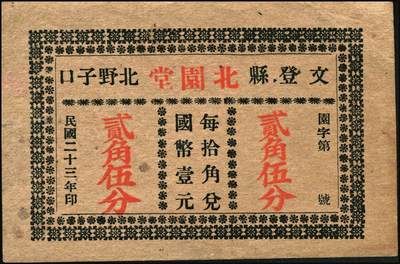 文登縣 北園堂 北野子口
園字第 號
貳角伍分
每拾角兌
國幣壹元
貳角伍分
民國二十三年印